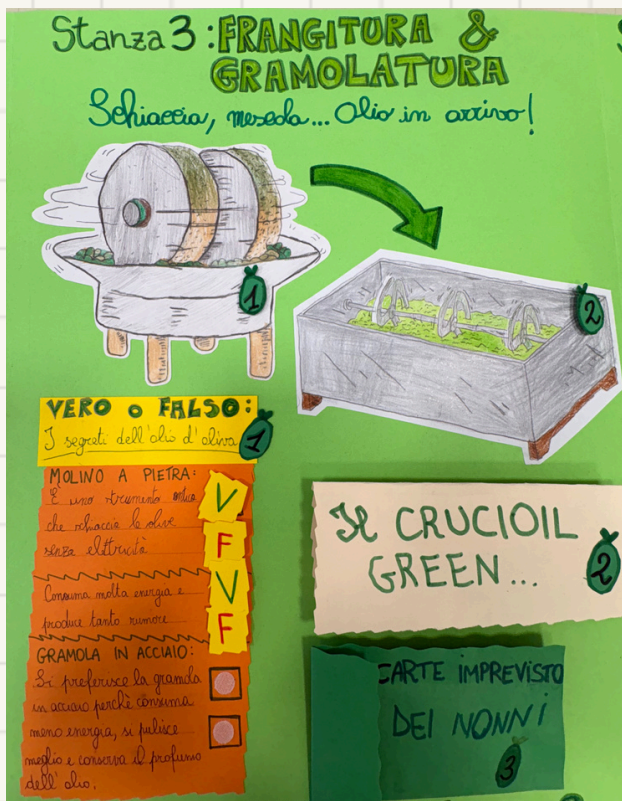 Stanza 3: FRANGITURA &
GRAMOLATURA
Schiaccia, mescola... Olio in arrivo!
1
2
VERO O FALSO:
I segreti dell'olio d'oliva
1
MOLINO A PIETRA:
È uno strumento antico
che schiaccia le olive
senza elettricità
V
F
Consuma molta energia e
produce tanto rumore
V
F
GRAMOLA IN ACCIAIO:
Si preferisce la gramola
in acciaio perchè consuma
meno energia, si pulisce
meglio e conserva il profumo
dell'olio.
Il CRUCIOIL
GREEN...
2
CARTE IMPREVISTO
DEI NONNI
3